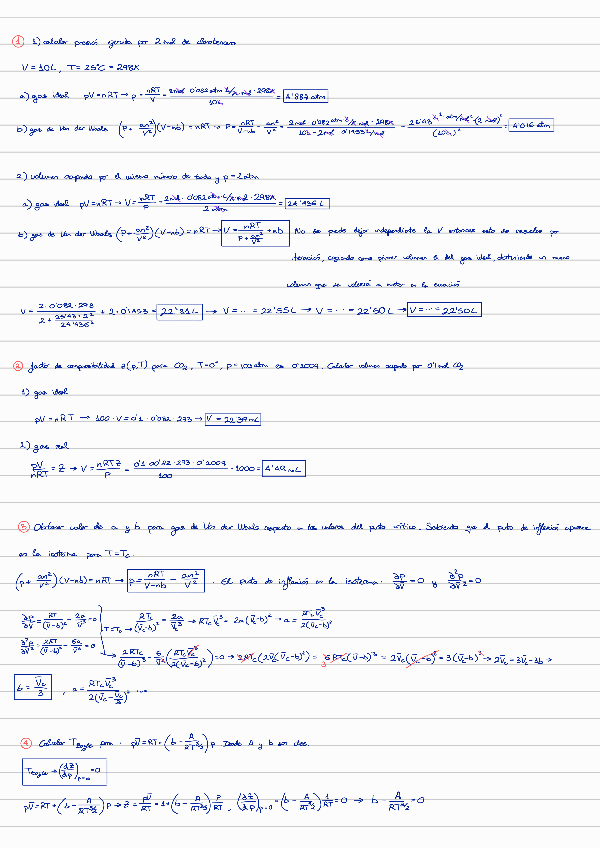 ① 1) calcular presión ejercida por 2 mol de clorobenceno
V = 10L, T = 25°C = 298K
a) gas ideal pV = nRT → p = nRT/V = 2mol · 0'082 atm·L/K·mol · 298K / 10L = 4'887 atm
b) gas de Van der Waals (P + an²/V²)(V-nb) = nRT → P = nRT/(V-nb) - an²/V² = 2mol · 0'082 atm · 298K / 10L - 2mol · 0'1453 L/mol - 25'43 · (2 mol)² / (10L)² = 4'016 atm
2) volumen ocupado por el mismo número de moles y p = 2 atm
a) gas ideal pV = nRT → V = nRT/P = 2mol · 0'082 atm·L/K·mol · 298K / 2 atm = 24'436 L
b) gas de Van der Waals (P + an²/V²)(V-nb) = nRT → V = nRT/(P + an²/V²) + nb No se puede dejar independiente la V entonces esto se resuelve por
iteración, cogiendo como primer volumen el del gas ideal, obteniendo un nuevo
volumen que se volverá a meter en la ecuación
V = 2 · 0'082 · 298 / (2 + 25'43 · 2² / 24'436²) + 2 · 0'1453 = 22'81L → V = ... = 22'55L → V = ... = 22'50L → V = ... = 22'50L
② factor de compresibilidad z(p,T) para CO₂, T = 0°, p = 100 atm es 0'2007. Calcular volumen ocupado por 0'1 mol CO₂
1) gas ideal
pV = nRT → 100 · V = 0'1 · 0'082 · 273 → V = 22'39 mL
2) gas real
pV/nRT = Z → V = nRTZ/P = 0'1 · 0'082 · 273 · 0'2007 / 100 · 1000 = 4'49 mL
③ Obtener valor de a y b para gas de Van der Waals respecto a los valores del punto crítico. Sabiendo que el punto de inflexión aparece
en la isoterma para T = Tc.
(p + an²/V²)(V-nb) = nRT → p = nRT/(V-nb) - an²/V² . El punto de inflexión en la isoterma: ∂p/∂V = 0 y ∂²p/∂V² = 0
∂p/∂V = RT/(V̄-b)² - 2a/V̄³ = 0
T = Tc → RTc/(V̄c-b)² = 2a/V̄c³ → RTc V̄c³ = 2a(V̄c-b)² → a = RTc V̄c³/2(V̄c-b)²
∂²p/∂V² = 2RT/(V̄-b)³ - 6a/V̄⁴ = 0
→ 2RTc/(V̄-b)³ - 6/V̄⁴ (RTc V̄c³/2(V̄c-b)²) = 0 → 2RTc(2V̄c(V̄c-b)²) = 6RTc(V̄-b)³ = 2V̄c(V̄c-b)² = 3(V̄c-b)³ → 2V̄c = 3V̄c - 3b →
b = V̄c/3 , a = RTc V̄c³ / 2(V̄c - V̄c/3)² ...
④ Calcular T_Boyle para: pV̄ = RT + (b - A/RT^(3/2)) p Donde A y b son ctes.
T_Boyle → (dZ/dp)_p=0 = 0
pV̄ = RT + (b - A/RT^(3/2)) p → Z = pV̄/RT = 1 + (b - A/RT^(3/2)) p/RT , (dZ/dp)_p=0 = (b - A/RT^(3/2)) 1/RT = 0 → b - A/RT^(3/2) = 0